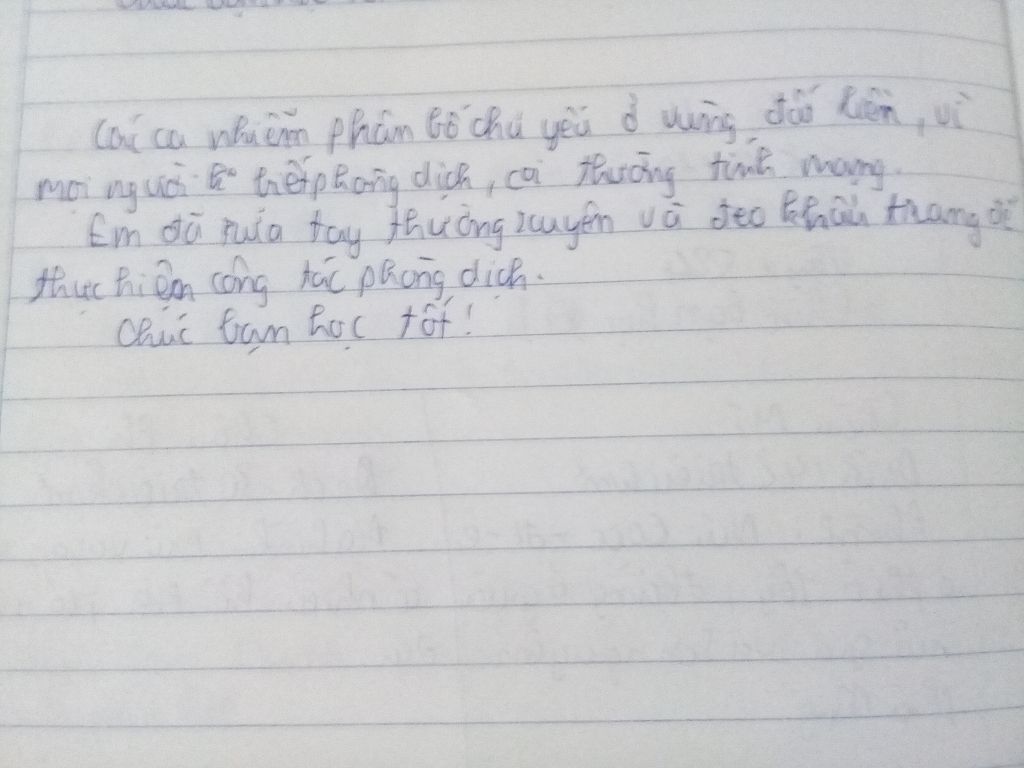 Các ca nhiễm phân bố chủ yếu ở vùng đất liền, vì
mọi người k° biết phòng dịch, coi thường tính mạng.
Em đã rửa tay thường xuyên và đeo khẩu trang để
thực hiện công tác phòng dịch.
Chúc bạn học tốt!